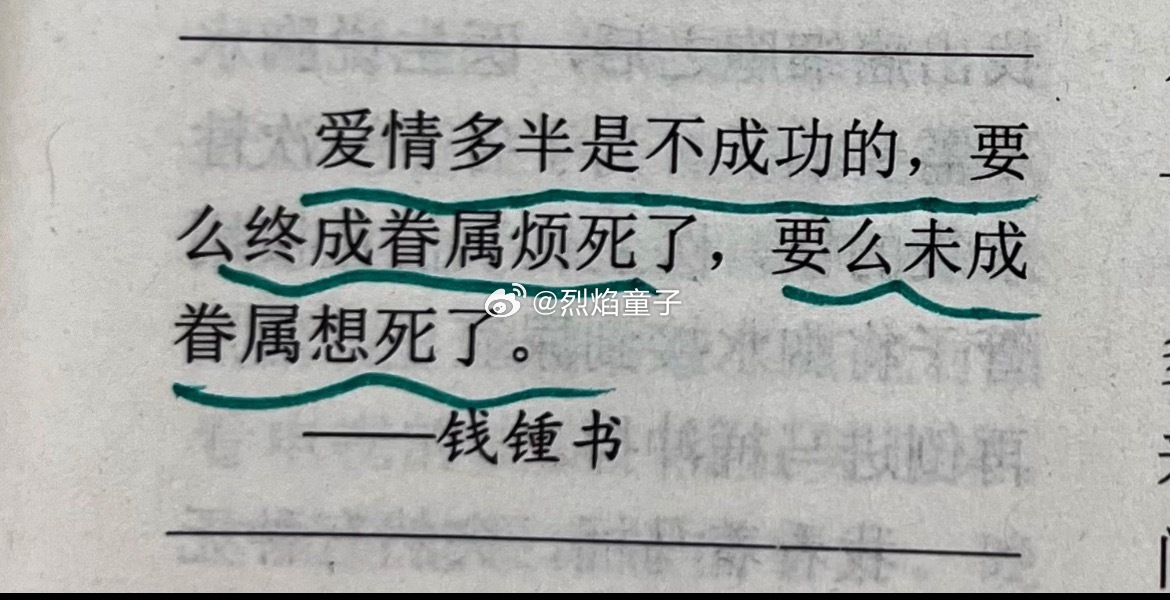 爱情多半是不成功的，要
么终成眷属烦死了，要么未成
眷属想死了。
@烈焰童子
——钱锺书